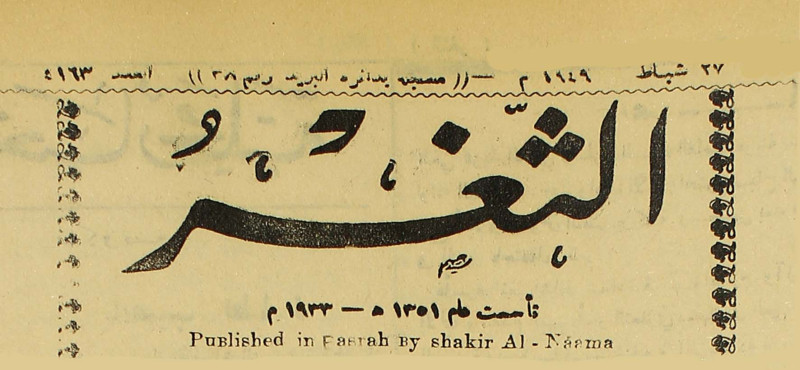 ٢٧ شباط ١٩٤٩ م —(( مسجلة بدائرة البريد رقم ٣٨ )) العدد ٤١٦٣
الثغر
تأسست عام ١٣٥١ ه — ١٩٣٣ م
Published in Basrah By shakir Al - Náama